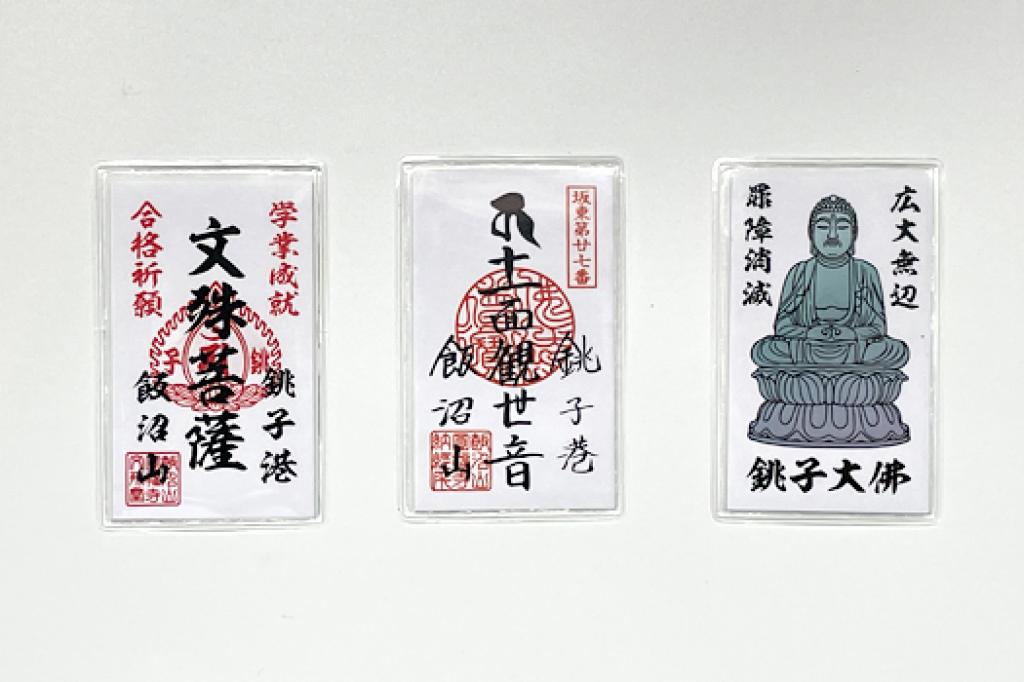 学業成就
文殊菩薩
合格祈願
銚子
銚子港
飯沼山
坂東第廿七番
十一面観世音
銚子港
飯沼山
広大無辺
罪障消滅
銚子大佛